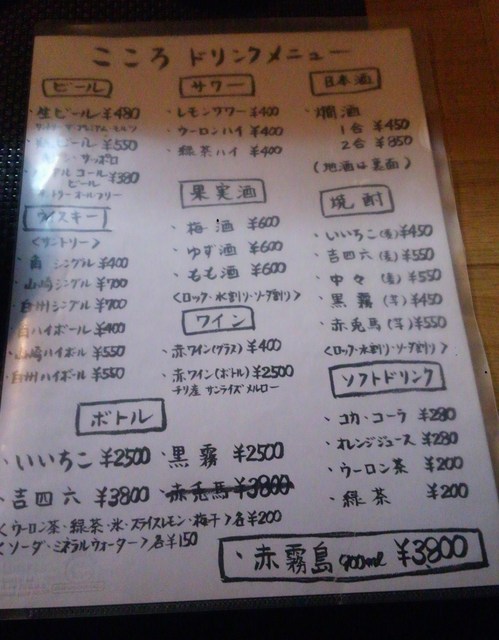 こころ ドリンクメニュー
ビール
・生ビール ¥480
ビール ¥550
サッポロ
コール ¥380
ビール
オールフリー
ウイスキー
<サントリー>
シングル ¥400
・山崎シングル ¥700
白州シングル ¥700
ハイボール ¥400
山崎ハイボル ¥550
白州ハイボール ¥550
サワー
・レモンサワー ¥400
・ウーロンハイ ¥400
・緑茶ハイ ¥400
果実酒
・梅酒 ¥600
・ゆず酒 ¥600
・もも酒 ¥600
<ロック・水割り・ソーダ割り>
ワイン
・赤ワイン(グラス) ¥400
・赤ワイン(ボトル) ¥2500
チリ産 サンライズ メルロー
日本酒
・燗酒
1合 ¥450
2合 ¥850
(地酒は裏面)
焼酎
・いいちこ(麦) ¥450
・吉四六(麦) ¥550
・中々(麦) ¥550
・黒霧(芋) ¥450
・赤兎馬(芋) ¥550
<ロック・水割り・ソーダ割り>
ソフトドリンク
・コカ・コーラ ¥280
・オレンジジュース ¥280
・ウーロン茶 ¥200
・緑茶 ¥200
ボトル
・いいちこ ¥2500
・黒霧 ¥2500
・吉四六 ¥3800
・赤兎馬 ¥3800
<ウーロン茶・緑茶・氷・スライスレモン・梅干>各¥200
<ソーダ・ミネラルウォーター>各¥150
・赤霧島 900ml ¥3800